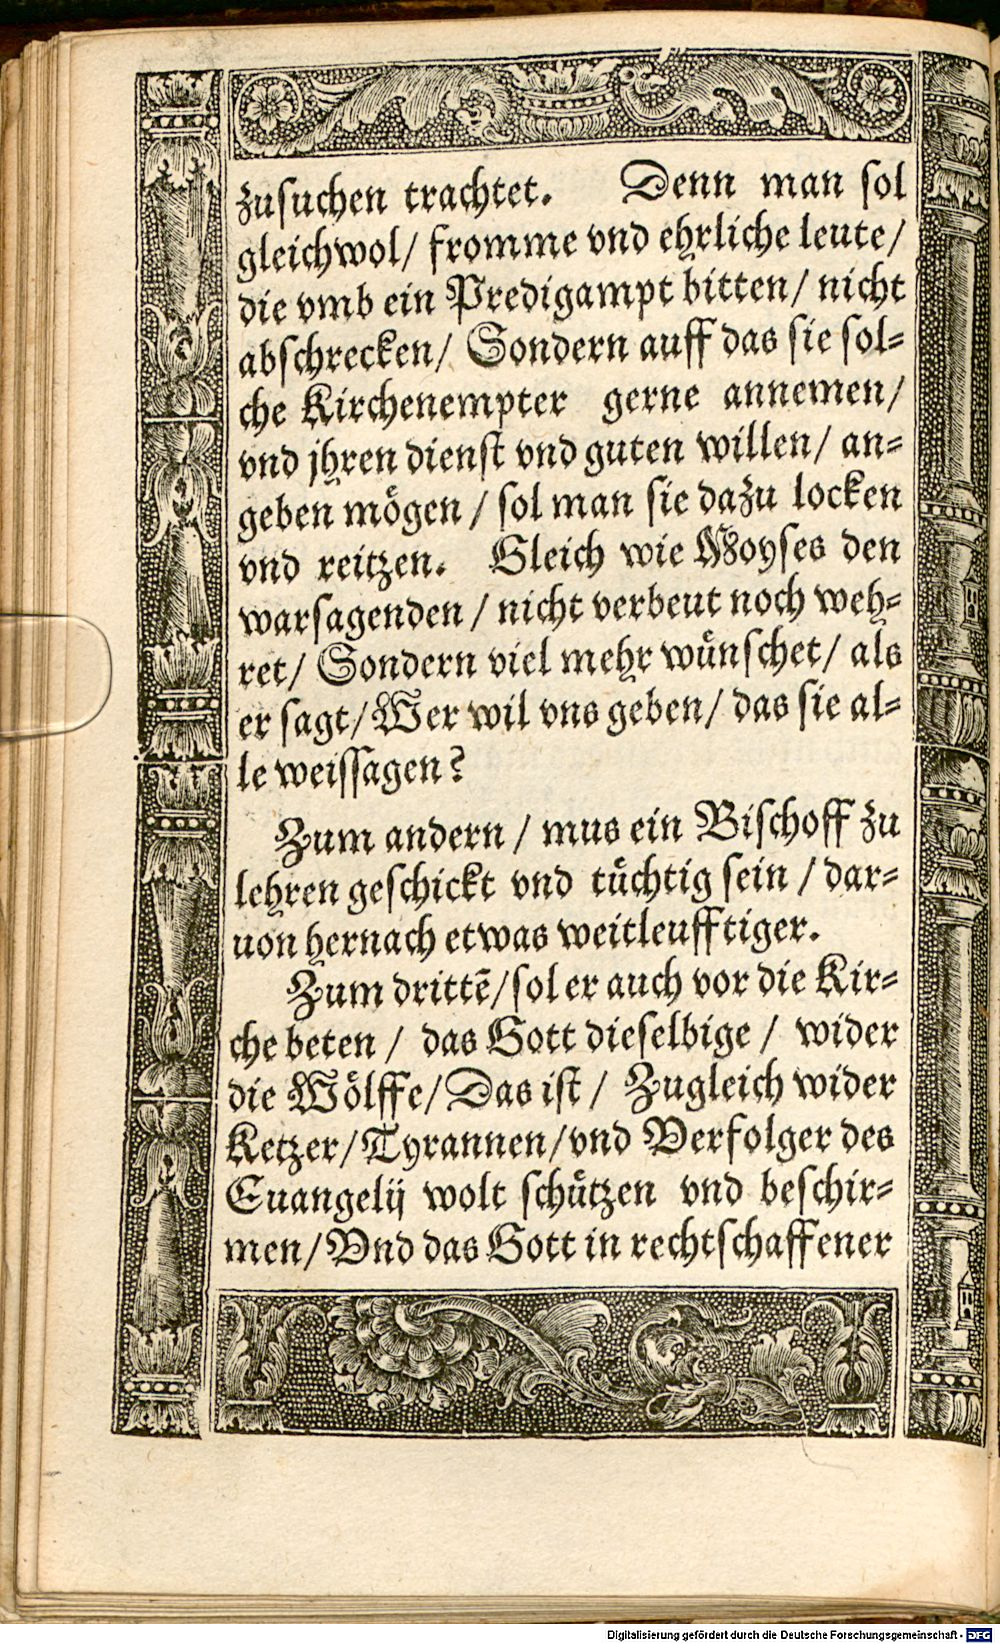 zusuchen trachtet. Denn man sol
gleichwol/ fromme vnd ehrliche leute/
die vmb ein Predigampt bitten/ nicht
abschrecken/ Sondern auff das sie sol=
che Kirchenempter gerne annemen/
vnd jhren dienst vnd guten willen/ an=
geben mögen/ sol man sie dazu locken
vnd reitzen. Gleich wie Moyses den
warsagenden/ nicht verbeut noch weh=
ret/ Sondern viel mehr wünschet/ als
er sagt/ Wer wil vns geben/ das sie al=
le weissagen?
Zum andern/ mus ein Bischoff zu
lehren geschickt vnd tüchtig sein/ dar=
uon hernach etwas weitleufftiger.
Zum drittē/ sol er auch vor die Kir=
che beten/ das Gott dieselbige/ wider
die Wölffe/ Das ist/ Zugleich wider
Ketzer/ Tyrannen/ vnd Verfolger des
Euangelij wolt schützen vnd beschir=
men/ Vnd das Gott in rechtschaffener
Digitalisierung gefördert durch die Deutsche Forschungsgemeinschaft - DFG